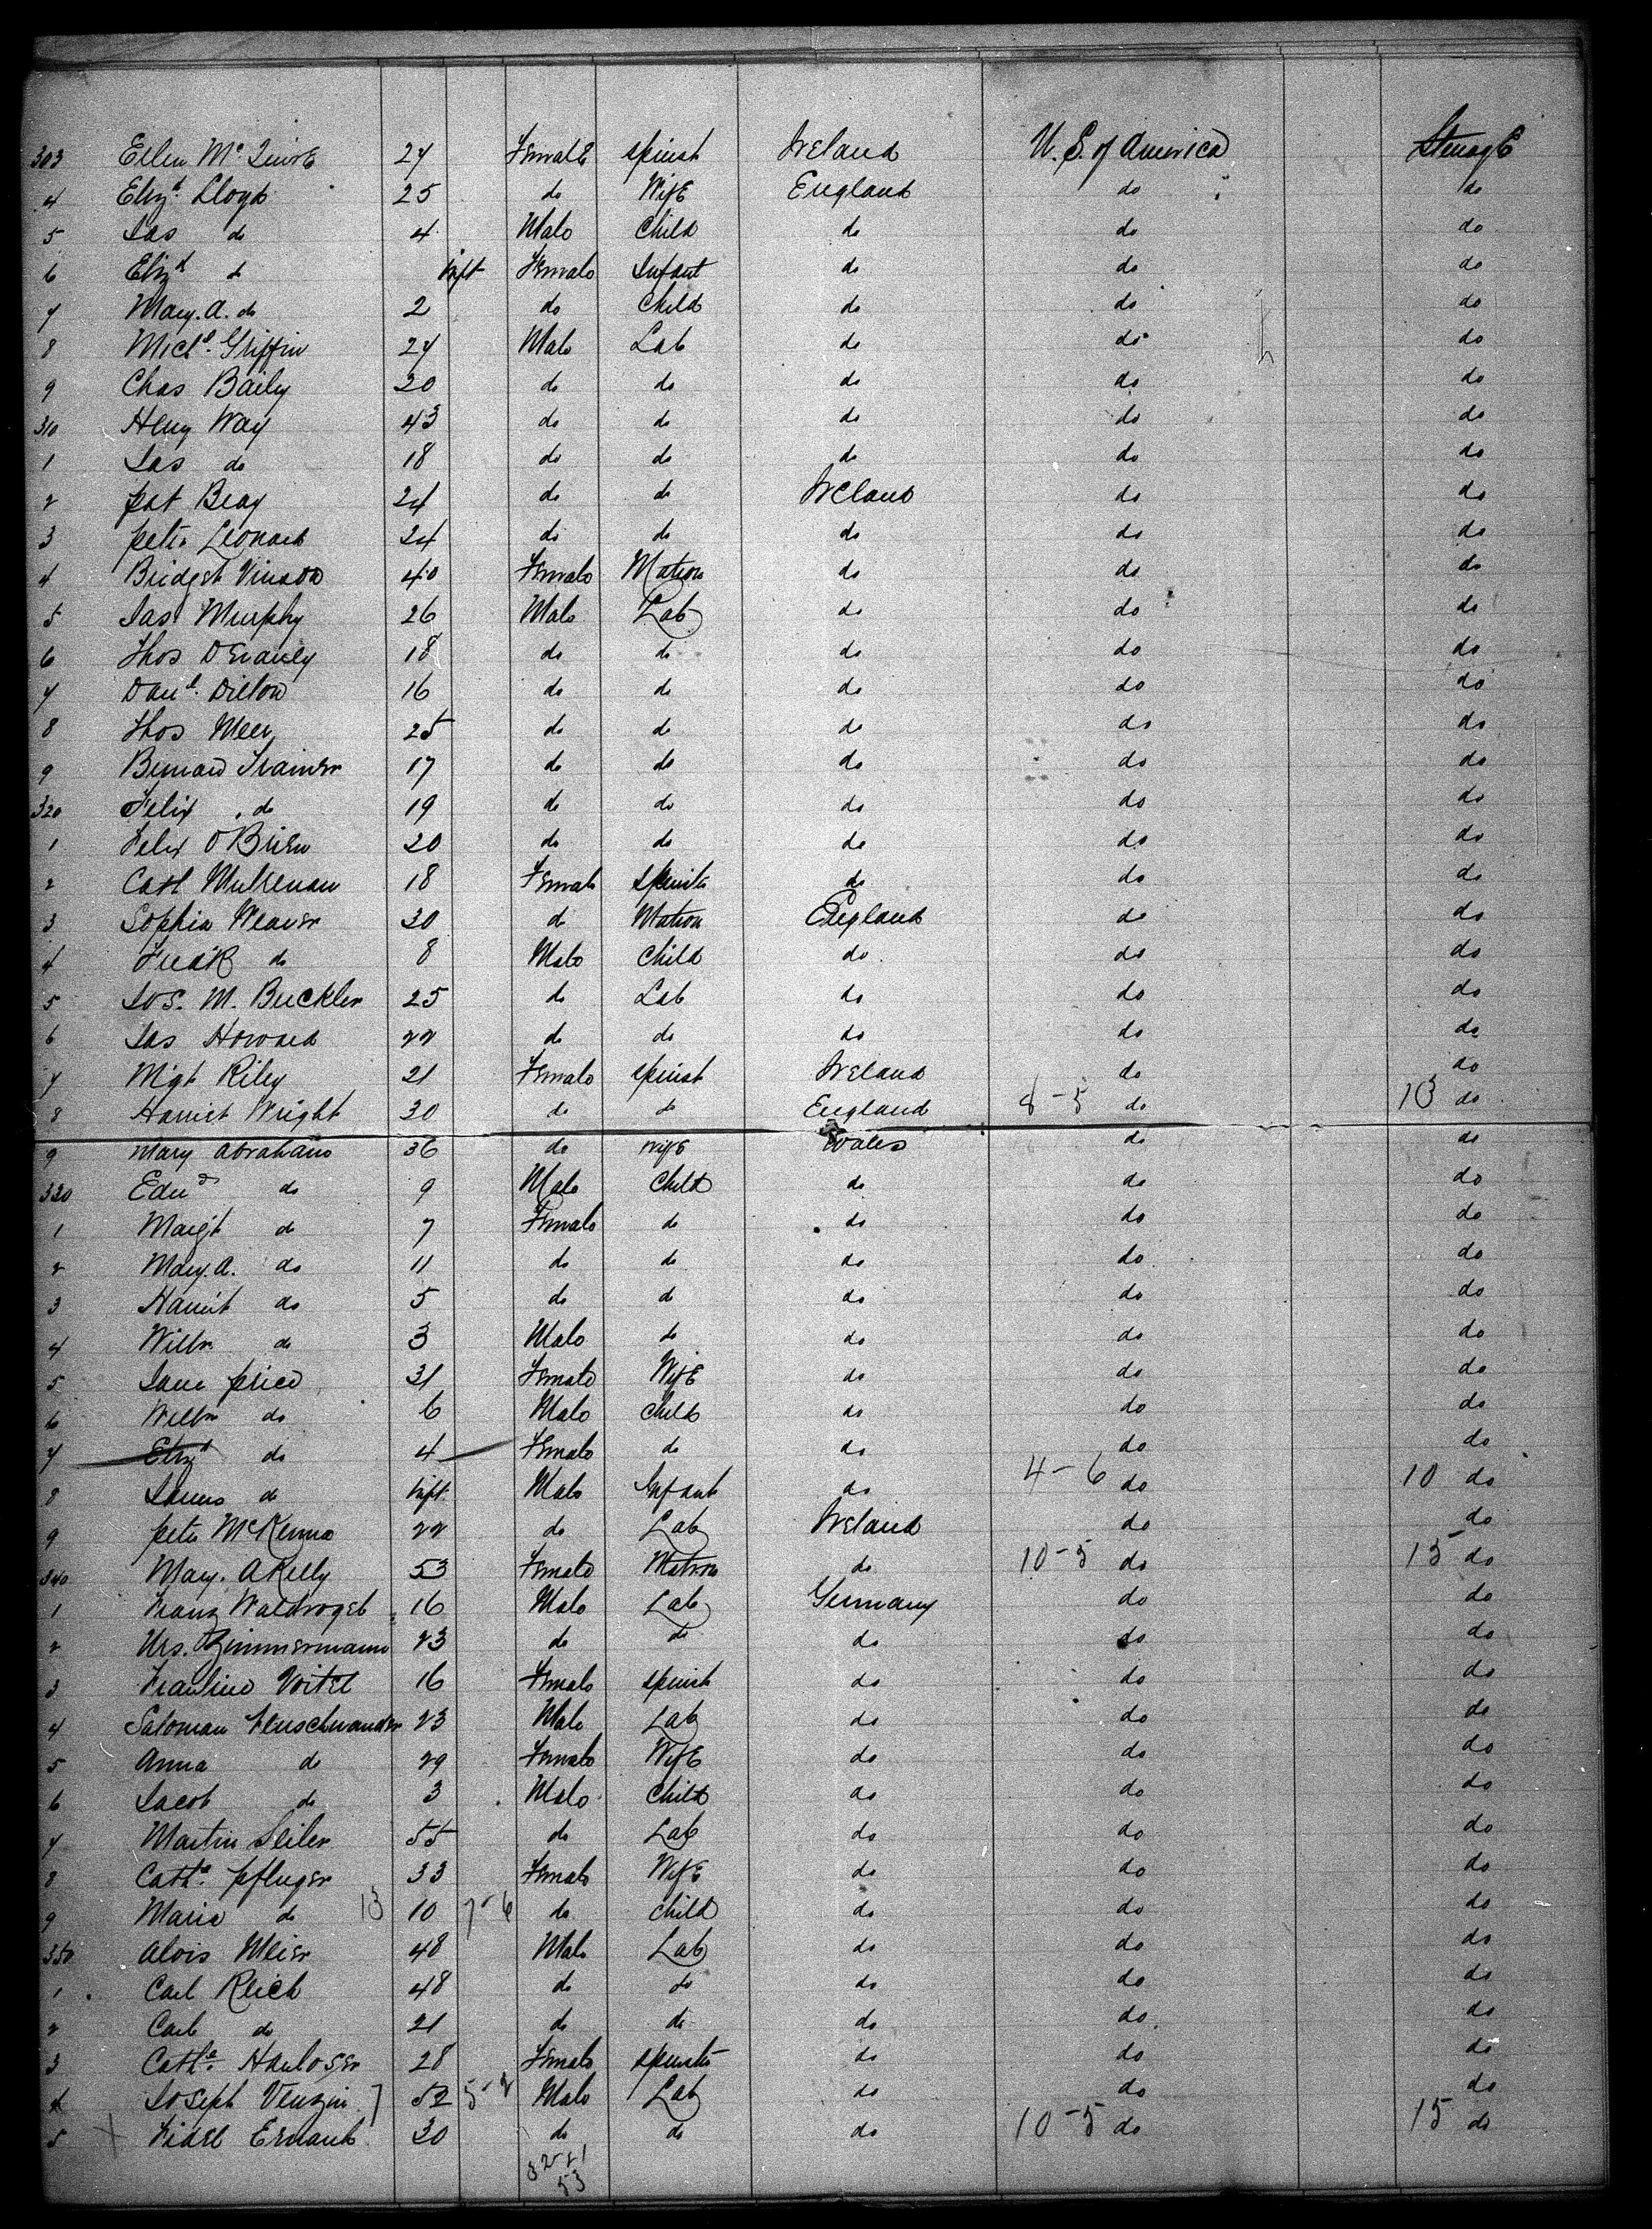 303 Ellen Mc Quirk 24 Female Spinst Ireland U. S. of America Steerage
4 Elizth Lloyd 25 do Wife England do do
5 Jas do 4 Male Child do do do
6 Elizth do Inft Female Infant do do do
7 Mary. A. do 2 do Child do do do
8 Michl. Griffin 24 Male Lab do do do
9 Chas Baily 20 do do do do do
310 Heny Way 43 do do do do do
1 Jas do 18 do do do do do
2 pat Beay 24 do do Ireland do do
3 peter Leonard 24 do do do do do
4 Bridget Vinson 40 Female Matron do do do
5 Jas Murphy 26 Male Lab do do do
6 Thos 18 do do do do do
7 Danl. Dillon 16 do do do do do
8 Thos Meer 25 do do do do do
9 Bernard Trainer 17 do do do do do
320 Felix do 19 do do do do do
1 Felix O'Brien 20 do do do do do
2 Cath Mulrenan 18 Female Spinster do do do
3 Sophia Weaver 30 do Matron England do do
4 Fredk do 8 Male Child do do do
5 Jos. M. Buckler 25 do Lab do do do
6 Jas Howard 22 do do do do do
7 Mgt Riley 21 Female Spinst Ireland do do
8 Harriet Wright 30 do do England 8-5 do 13 do
9 Mary Abrahams 36 do Wife Wales do do
330 Edwd do 9 Male Child do do do
1 Margt do 7 Female do do do do
2 Mary. A. do 11 do do do do do
3 Harriet do 5 do do do do do
4 Willm do 3 Male do do do do
5 Jane price 31 Female Wife do do do
6 Willm do 6 Male Child do do do
7 Elizth do 4 Female do do do do
8 James do Inft Male Infant do 4-6 do 10 do
9 peter McKenna 22 do Lab Ireland do do
340 Mary. A Kelly 53 Female Matron do 10-5 do 15 do
1 Franz Waldvogel 16 Male Lab Germany do do
2 Urs. Zimmermann 23 do do do do do
3 Voitel 16 Female Spinst do do do
4 Saloman 23 Male Lab do do do
5 Anna do 29 Female Wife do do do
6 Jacob do 3 Male Child do do do
7 Martin Seiler 55 do Lab do do do
8 Cathe. pfluger 33 Female Wife do do do
9 Maria do 13 10 7-6 do Child do do do
350 Alois Meier 48 Male Lab do do do
1 Carl Reich 48 do do do do do
2 Carl do 21 do do do do do
3 Cathe. Hauloser 28 Female Spinster do do do
4 Joseph Venzin 52 5-2 Male Lab do do do
5 Fidel 30 do do do 10-5 do 15 do
53